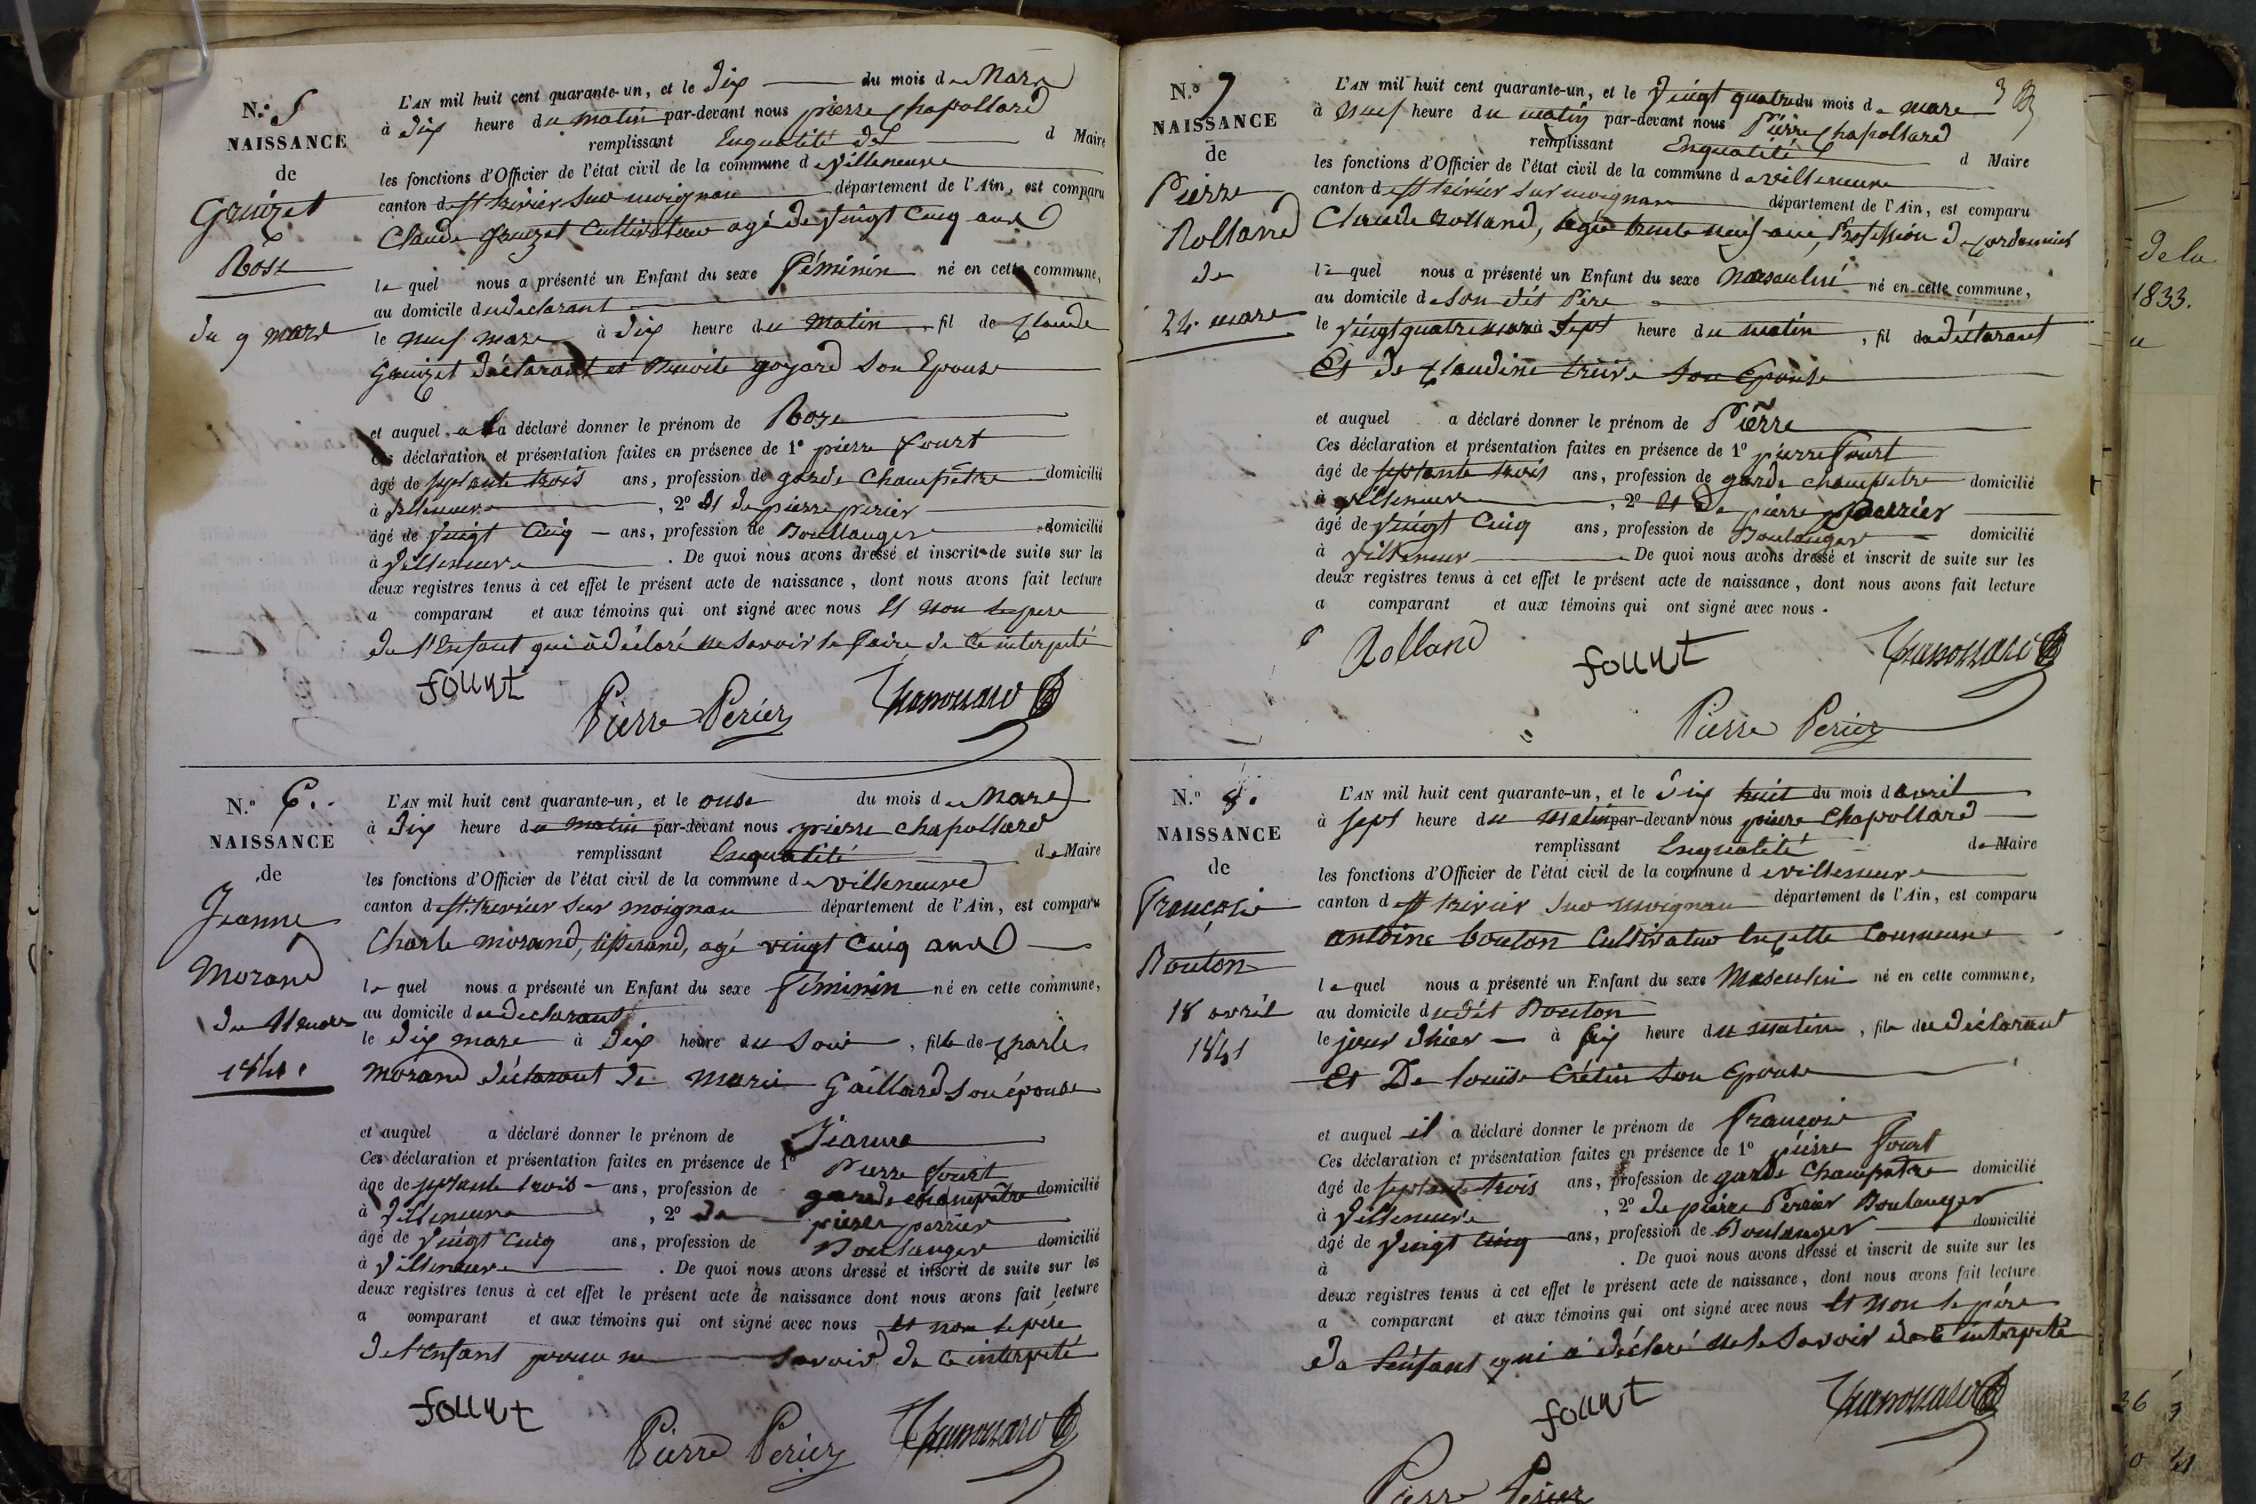 N.º 5
NAISSANCE
de
Gruizet
Rose
du 9 mars
L'AN mil huit cent quarante-un, et le dix du mois de Mars
à dix heure du matin par-devant nous pierre Chapollard
remplissant Enqualité de d Maire
les fonctions d'Officier de l'état civil de la commune de villeneuve
canton de st trivier sur moignan département de l'Ain, est comparu
Claude Gruizet Cultivateur agé de vingt Cinq ans
le quel nous a présenté un Enfant du sexe féminin né en cette commune,
au domicile du declarant
le neuf mars à dix heure du Matin, fil de Claude
Gruizet déclarant et Benoite goyard son Epouse
et auquel a déclaré donner le prénom de Rose
Ces déclaration et présentation faites en présence de 1º pierre fourt
âgé de septante trois ans, profession de garde Champêtre domicilié
à villeneuve, 2º Et de pierre perier
âgé de vingt Cinq ans, profession de Boullanger domicilié
à villeneuve. De quoi nous avons dressé et inscrit de suite sur les
deux registres tenus à cet effet le présent acte de naissance, dont nous avons fait lecture
a comparant et aux témoins qui ont signé avec nous Et non le pere
de l'Enfant qui à déclaré ne savoir le faire de ce interpeté
fourt
Pierre Perier
N.º 6.
NAISSANCE
de
Jeanne
Morand
du 11 mars
1841
L'AN mil huit cent quarante-un, et le onse du mois de Mars
à dix heure du matin par-devant nous pierre Chapollard
remplissant Enqualité de Maire
les fonctions d'Officier de l'état civil de la commune de villeneuve
canton de st. trivier sur moignan département de l'Ain, est comparu
Charle morand, tisserand, agé vingt Cinq ans
le quel nous a présenté un Enfant du sexe féminin né en cette commune,
au domicile du declarant
le dix mars à dix heure du Soir, fille de Charle
morand déclarant de marie Gaillard son épouse
et auquel a déclaré donner le prénom de Jeanne
Ces déclaration et présentation faites en présence de 1º Pierre fourt
âgé de septante trois ans, profession de garde champêtre domicilié
à villeneuve, 2º de pierre perrier
âgé de vingt Cinq ans, profession de Boulanger domicilié
à villeneuve. De quoi nous avons dressé et inscrit de suite sur les
deux registres tenus à cet effet le présent acte de naissance dont nous avons fait lecture
a comparant et aux témoins qui ont signé avec nous et non le père
de l'enfant pour ne savoir de ce interpeté
fourt
Pierre Perier
3
N.º 7
NAISSANCE
de
Pierre
Rolland
de
24 mars
L'AN mil huit cent quarante-un, et le vingt quatre du mois de mars
à neuf heure du matin par-devant nous Pierre Chapollard
remplissant Enqualité d Maire
les fonctions d'Officier de l'état civil de la commune de villeneuve
canton de st trivier sur moignan département de l'Ain, est comparu
Claude Rolland, agé trente neuf ans, Profession de Cordonnier
le quel nous a présenté un Enfant du sexe masculin né en cette commune,
au domicile de son dit Père
le vingt quatre mars à sept heure du matin, fil du déclarant
Et de Claudine trive son Epouse
et auquel a déclaré donner le prénom de Pierre
Ces déclaration et présentation faites en présence de 1º pierre fourt
âgé de septante trois ans, profession de garde champetre domicilié
à villeneuve, 2º et de pierre perrier
âgé de vingt Cinq ans, profession de Boulanger domicilié
à villeneuve. De quoi nous avons dressé et inscrit de suite sur les
deux registres tenus à cet effet le présent acte de naissance, dont nous avons fait lecture
a comparant et aux témoins qui ont signé avec nous.
Rolland
fourt
Pierre Perier
N.º 8.
NAISSANCE
de
Francois
Bouton
18 avril
1841
L'AN mil huit cent quarante-un, et le dix huit du mois d'avril
à sept heure du matin par-devant nous pierre Chapollard
remplissant Enqualité de Maire
les fonctions d'Officier de l'état civil de la commune de villeneuve
canton de st trivier sur moignan département de l'Ain, est comparu
antoine bouton Cultivateur En cette Commune
le quel nous a présenté un Enfant du sexe Masculin né en cette commune,
au domicile dudit Bouton
le jour d'hier à six heure du matin, fils du déclarant
Et De louise Crétin son Epouse
et auquel il a déclaré donner le prénom de Francois
Ces déclaration et présentation faites en présence de 1º pierre fourt
âgé de septante trois ans, profession de garde Champetre domicilié
à villeneuve, 2º de pierre Perrier Boulanger
âgé de vingt cinq ans, profession de Boulanger domicilié
à . De quoi nous avons dressé et inscrit de suite sur les
deux registres tenus à cet effet le présent acte de naissance, dont nous avons fait lecture
a comparant et aux témoins qui ont signé avec nous et non le père
de l'enfant qui à déclaré ne le savoir de ce interpeté
fourt
Pierre Perier
de la
1833.